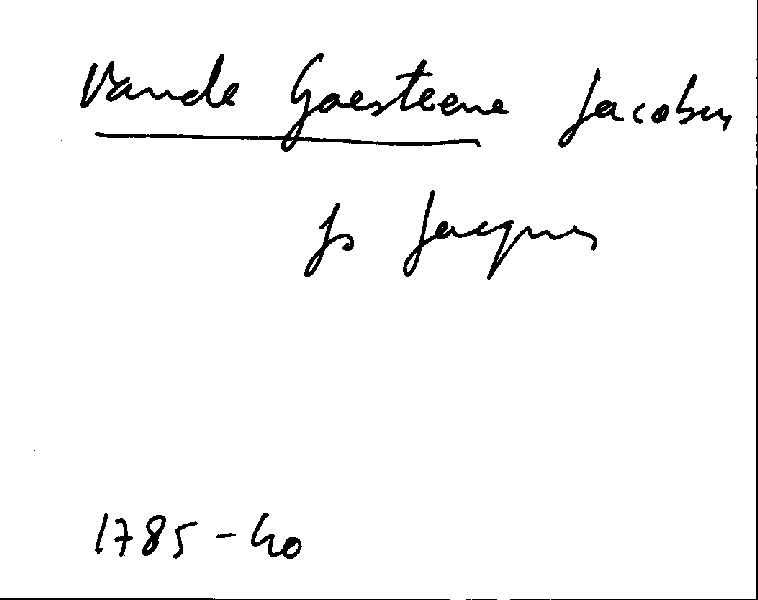 Vande Gaesteene Jacobus
fs Jacques
1785-40